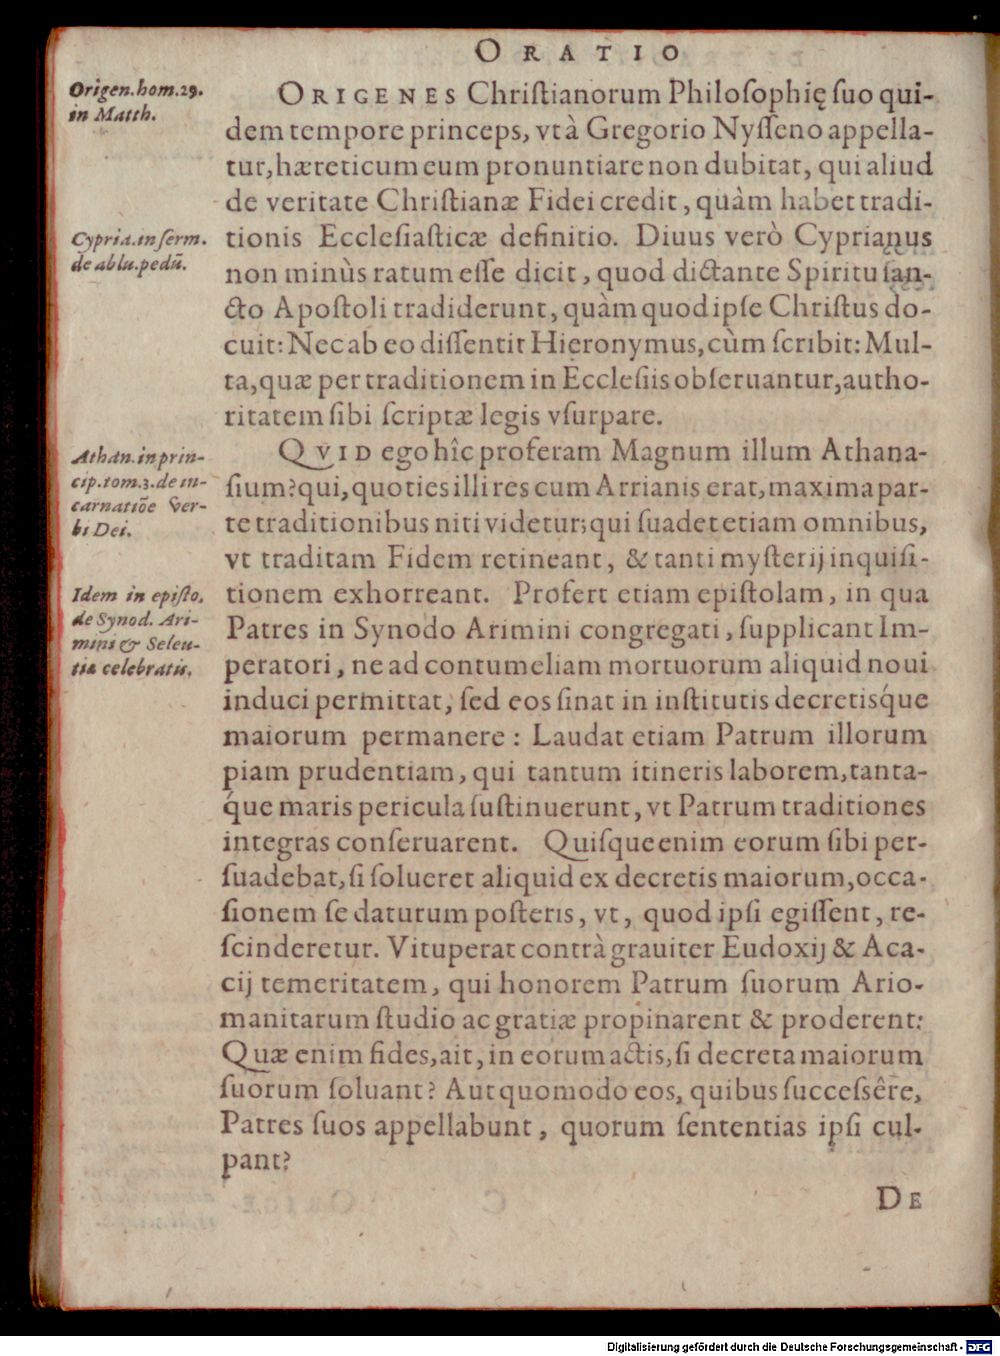 ORATIO
Origen.hom.29.
in Matth.
ORIGENES Chriſtianorum Philoſophię ſuo qui-
dem tempore princeps, vt à Gregorio Nyſſeno appella-
tur, hæreticum eum pronuntiare non dubitat, qui aliud
de veritate Chriſtianæ Fidei credit, quàm habet tradi-
Cypria.in ſerm.
de ablu.pedū.
tionis Eccleſiaſticæ definitio. Diuus verò Cyprianus
non minùs ratum eſſe dicit, quod dictante Spiritu ſan-
cto Apoſtoli tradiderunt, quàm quod ipſe Chriſtus do-
cuit: Nec ab eo diſſentit Hieronymus, cùm ſcribit: Mul-
ta, quæ per traditionem in Eccleſiis obſeruantur, autho-
ritatem ſibi ſcriptæ legis vſurpare.
Athan.in prin-
cip.tom.3.de in-
carnatiōe Ver-
bi Dei.
QVID ego hîc proferam Magnum illum Athana-
ſium? qui, quoties illi res cum Arrianis erat, maxima par-
te traditionibus niti videtur; qui ſuadet etiam omnibus,
vt traditam Fidem retineant, & tanti myſterij inquiſi-
Idem in epiſto,
de Synod. Ari-
mini & Seleu-
tiæ celebratis.
tionem exhorreant. Profert etiam epiſtolam, in qua
Patres in Synodo Arimini congregati, ſupplicant Im-
peratori, ne ad contumeliam mortuorum aliquid noui
induci permittat, ſed eos ſinat in inſtitutis decretisq́ue
maiorum permanere: Laudat etiam Patrum illorum
piam prudentiam, qui tantum itineris laborem, tanta-
q́ue maris pericula ſuſtinuerunt, vt Patrum traditiones
integras conſeruarent. Quiſque enim eorum ſibi per-
ſuadebat, ſi ſolueret aliquid ex decretis maiorum, occa-
ſionem ſe daturum poſteris, vt, quod ipſi egiſſent, re-
ſcinderetur. Vituperat contrà grauiter Eudoxij & Aca-
cij temeritatem, qui honorem Patrum ſuorum Ario-
manitarum ſtudio ac gratiæ propinarent & proderent:
Quæ enim fides, ait, in eorum actis, ſi decreta maiorum
ſuorum ſoluant? Aut quomodo eos, quibus ſucceſsêre,
Patres ſuos appellabunt, quorum ſententias ipſi cul-
pant?
DE
Digitalisierung gefördert durch die Deutsche Forschungsgemeinschaft - DFG